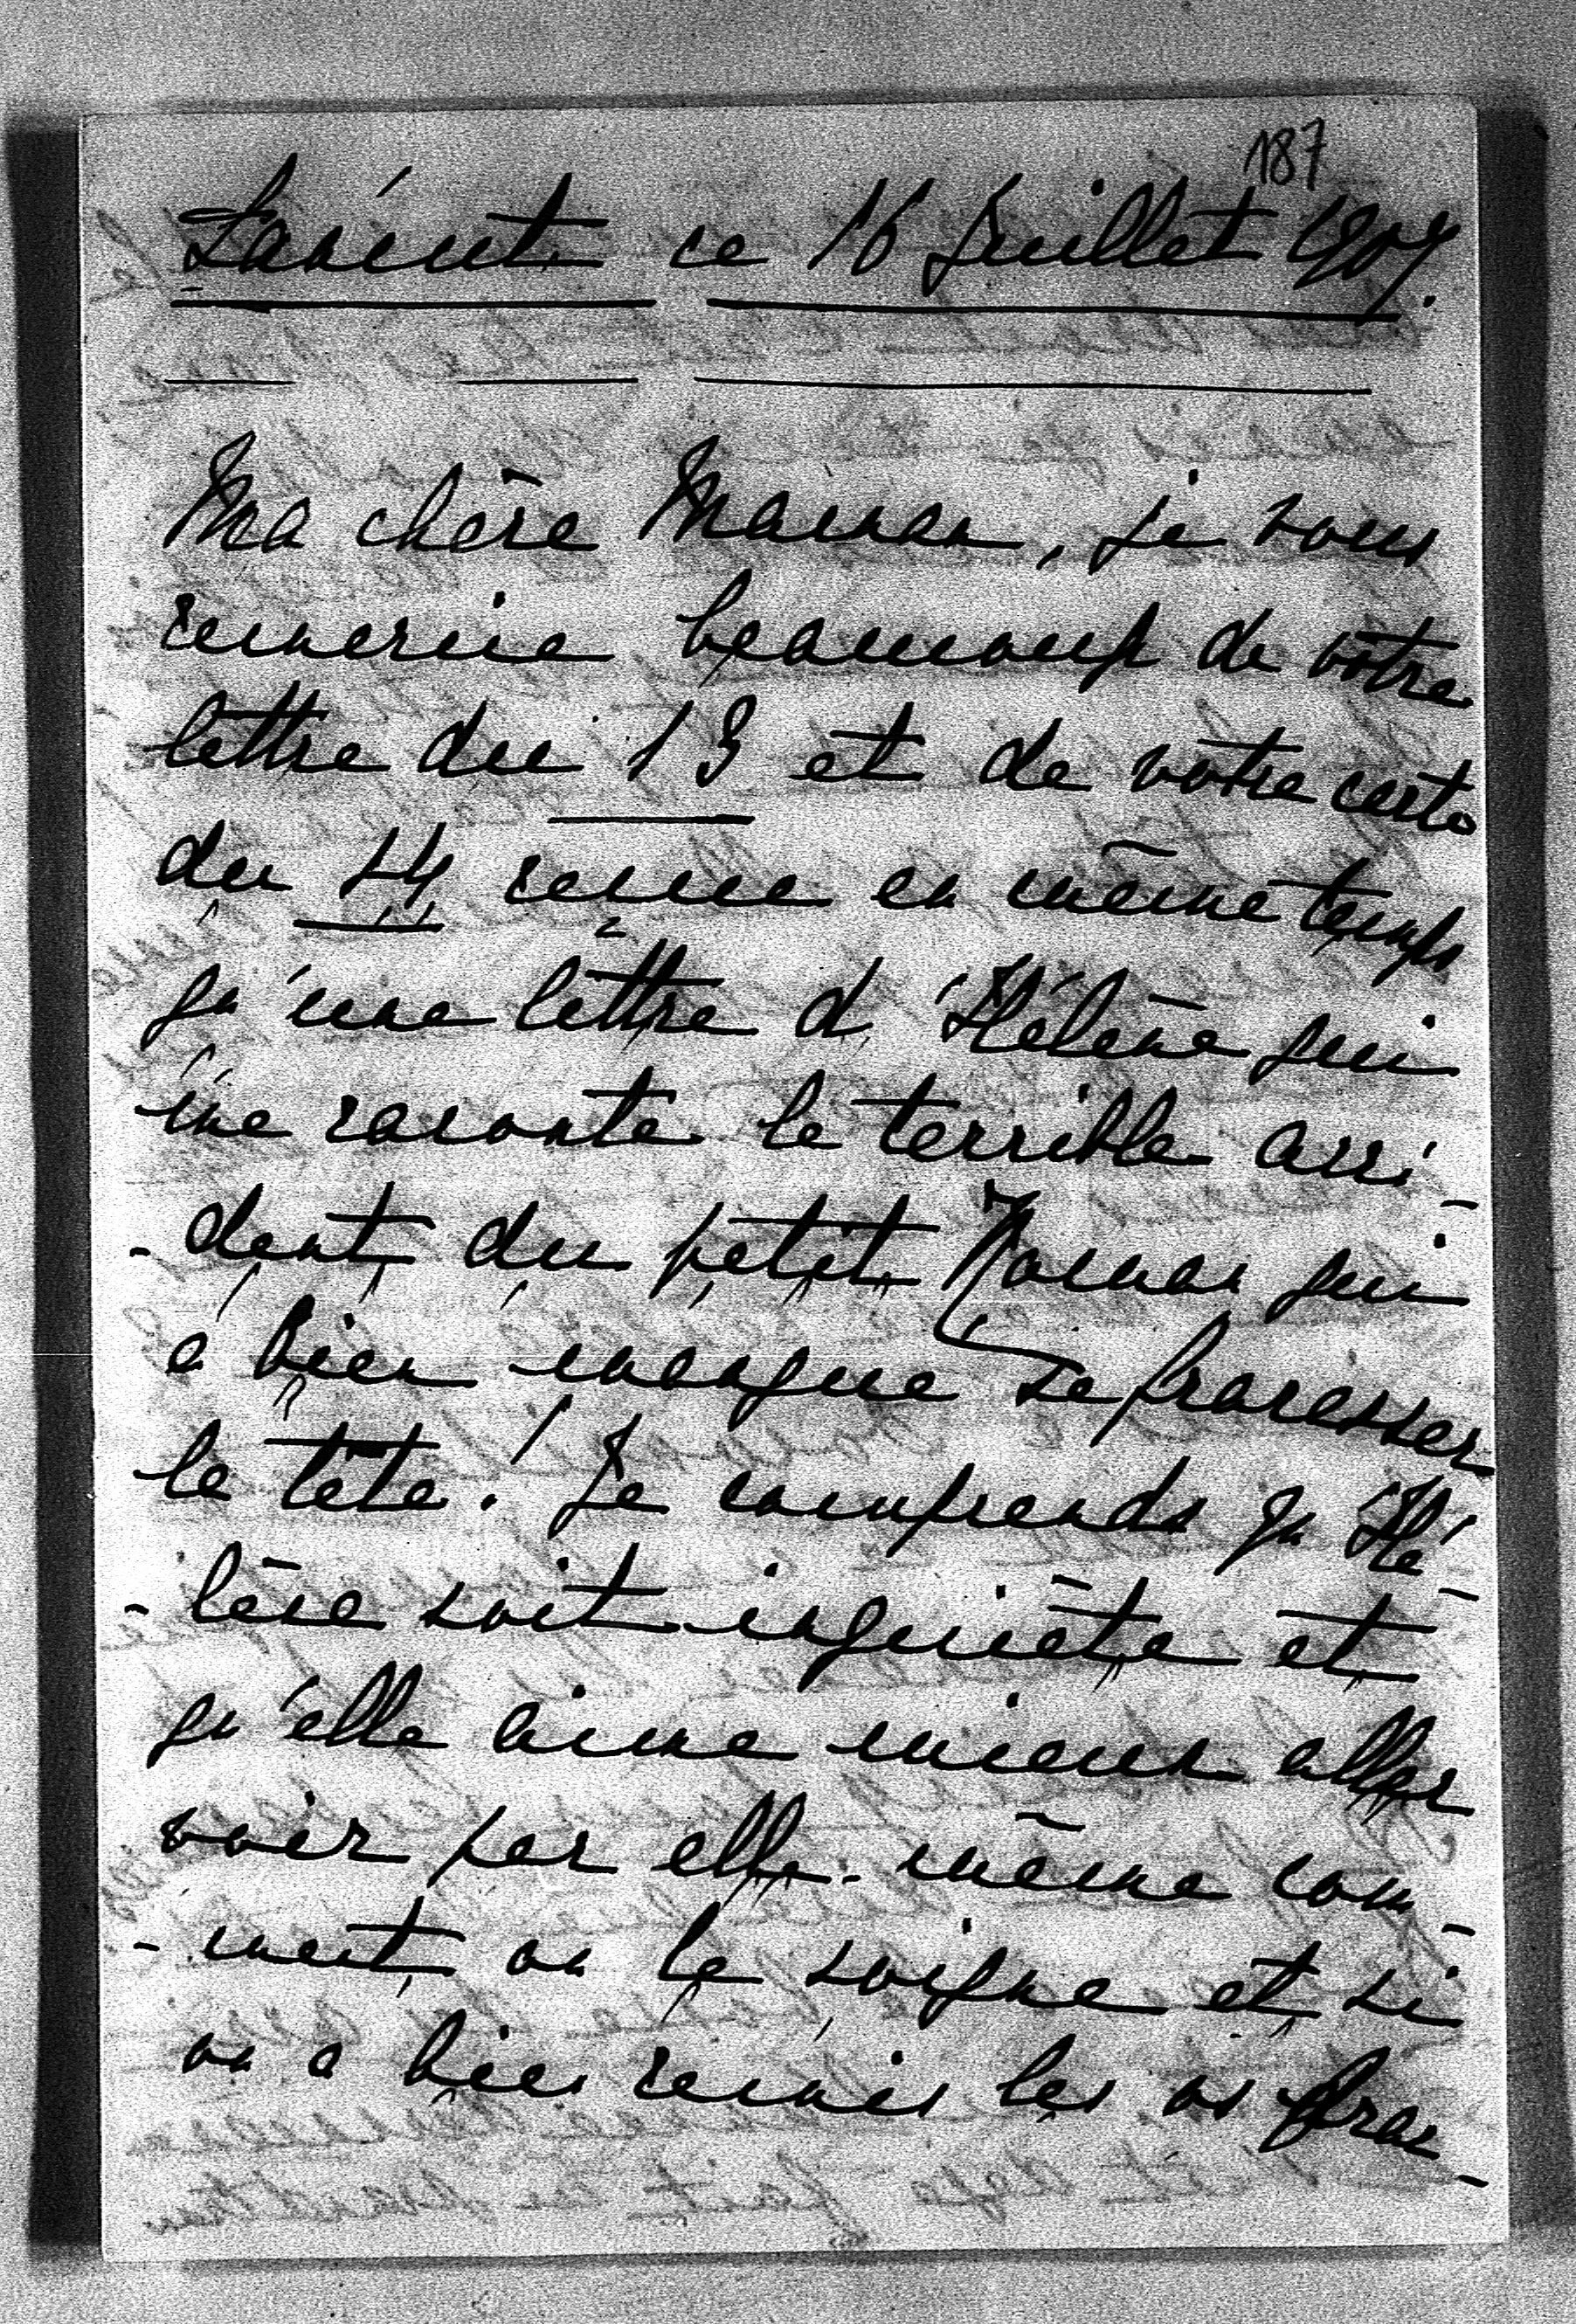 187
Lanéut ce 16 Juillet 1907.
Ma chère Maman, je vous
remercie beaucoup de votre
lettre du 13 et de votre carte
du 14 reçue en même temps
qu'une lettre d'Hélène qui
me raconte le terrible acci-
-dent du petit Roman qui
a bien manqué se fracasser
la tête! Je comprends qu'Hé-
-lène soit inquiète et
qu'elle aime mieux aller
voir par elle-même com-
-ment on le soigne et si
on a bien remis les os frac-